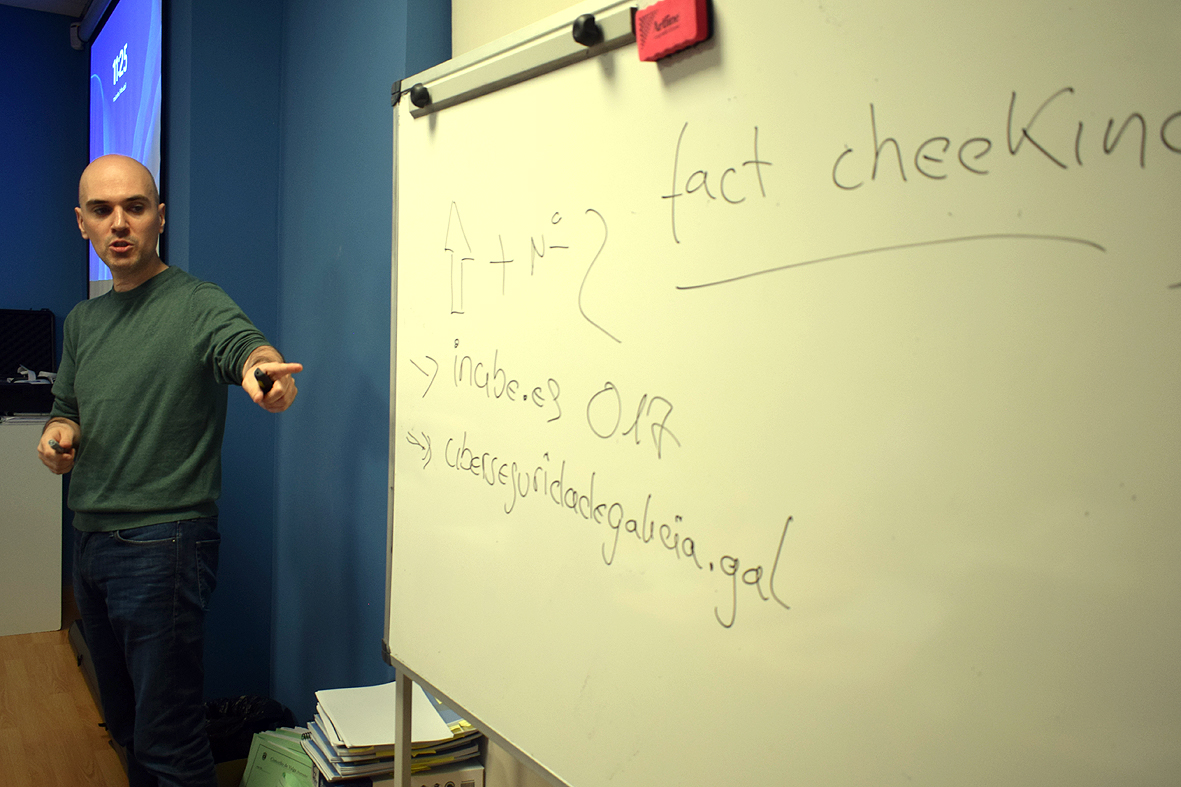 11:25
Artline
fact cheeking
⇧ + Nº
→ incibe.es 017
→ ciberseguridadegalicia.gal